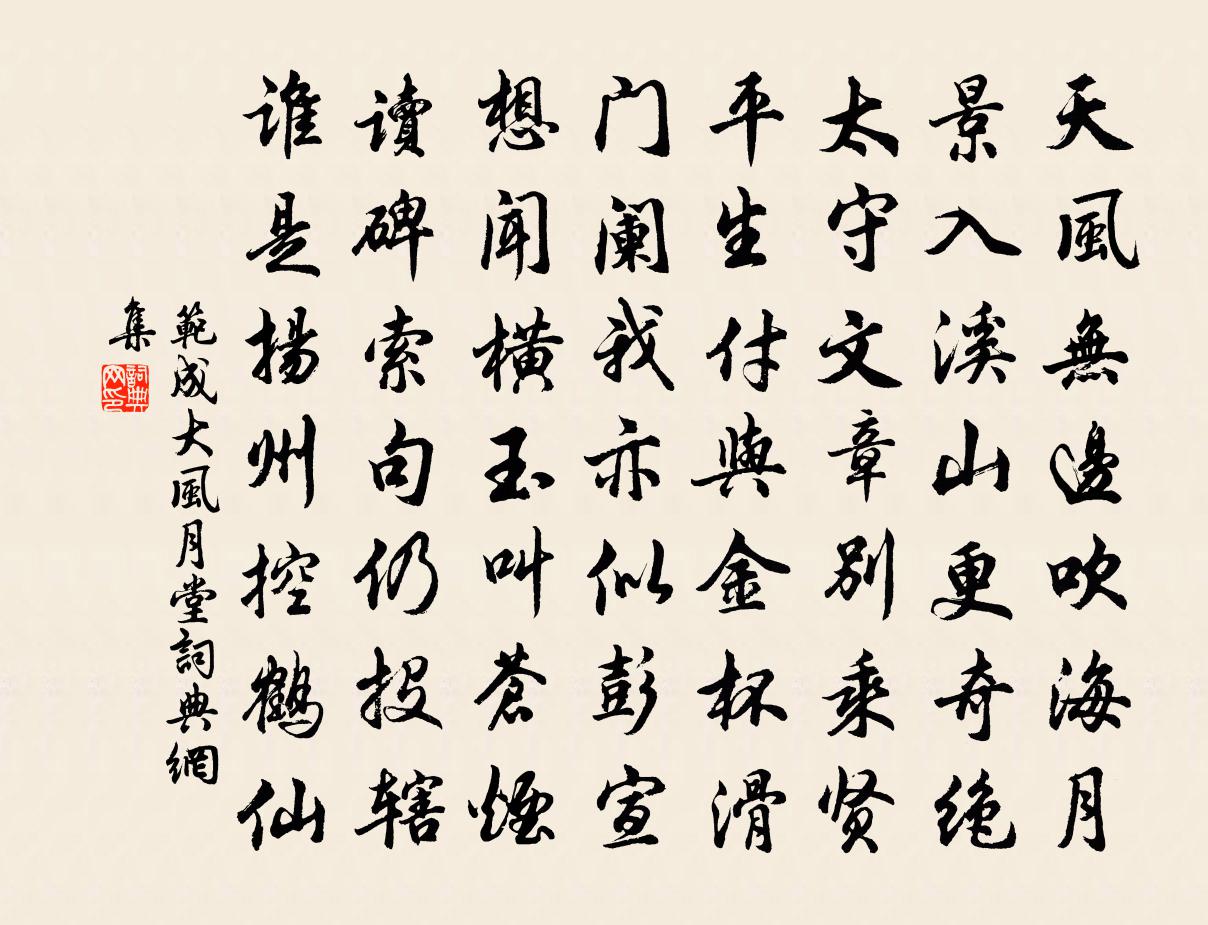 天風無邊吹海月
景入溪山更奇绝
太守文章别乘贤
平生付與金杯滑
门阑我亦似彭宣
想闻横玉叫蒼煙
讀碑索句仍投辖
谁是揚州控鹤仙
範成大風月堂詞典網
集
詞典
网印